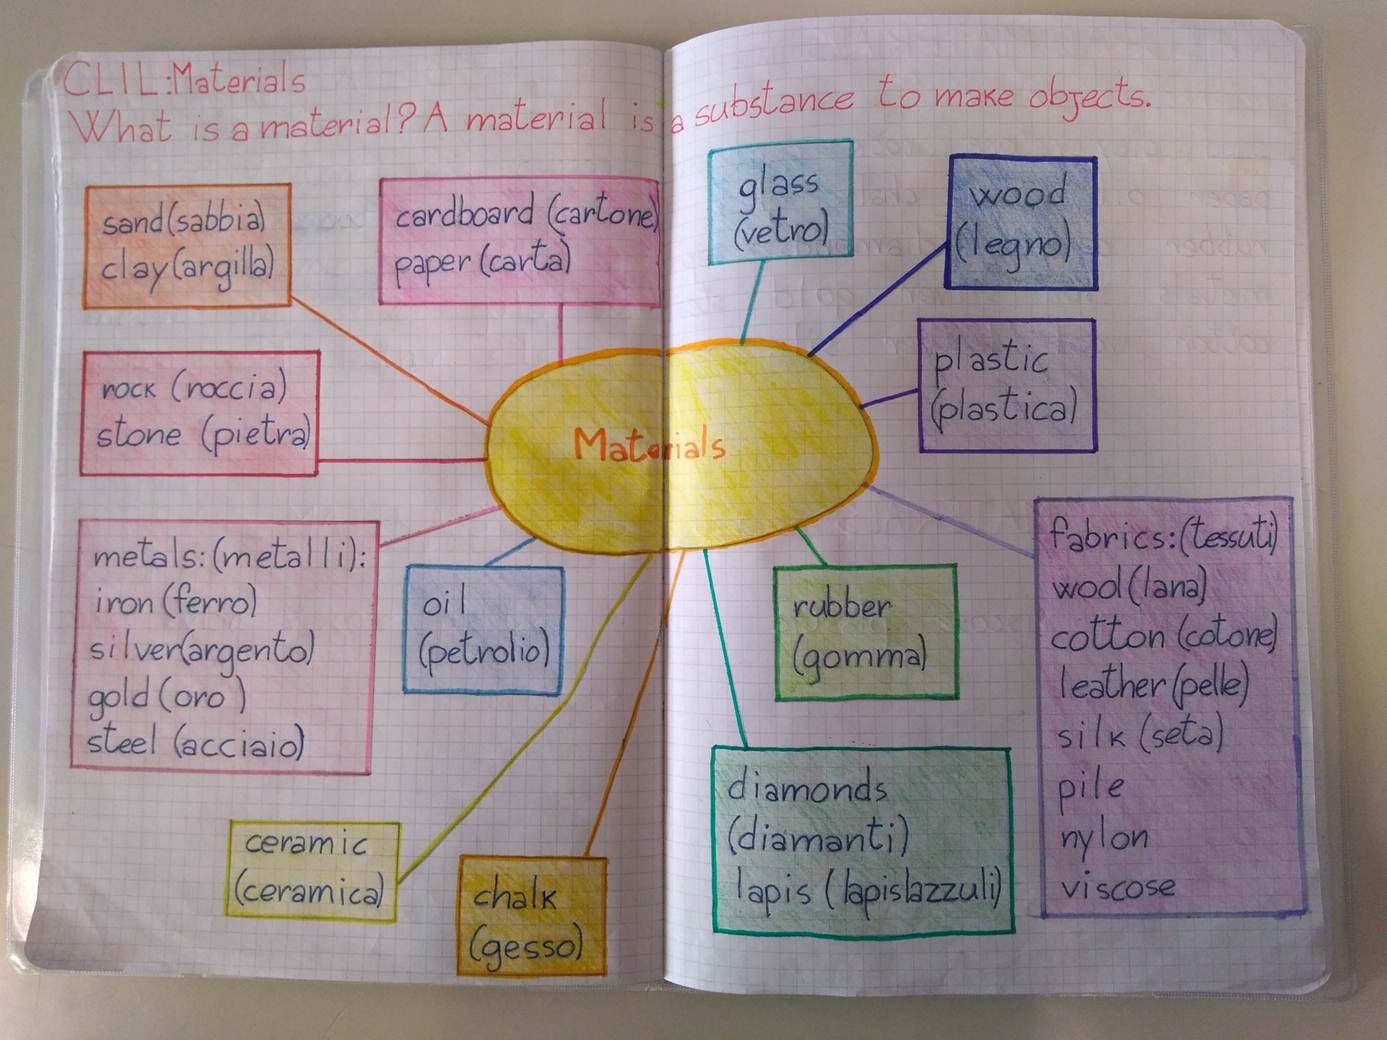 CLIL:Materials
What is a material? A material is a substance to make objects.
sand (sabbia)
clay (argilla)
cardboard (cartone)
paper (carta)
glass
(vetro)
wood
(legno)
rock (roccia)
stone (pietra)
plastic
(plastica)
Materials
metals: (metalli):
iron (ferro)
silver (argento)
gold (oro)
steel (acciaio)
oil
(petrolio)
rubber
(gomma)
fabrics: (tessuti)
wool (lana)
cotton (cotone)
leather (pelle)
silk (seta)
pile
nylon
viscose
ceramic
(ceramica)
chalk
(gesso)
diamonds
(diamanti)
lapis (lapislazzuli)